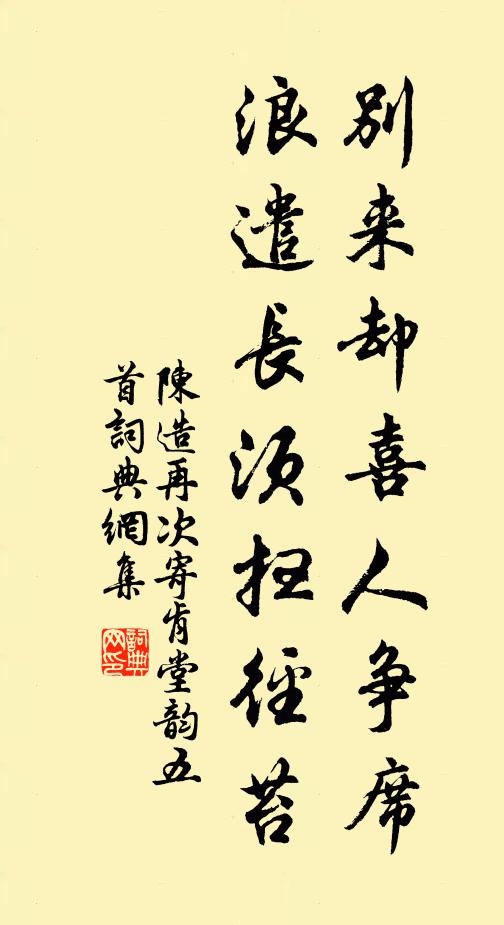 別来却喜人争席
浪遣長須扫徑苔
陳造再次寄肯堂韵五
首詞典網集
詞典
网印